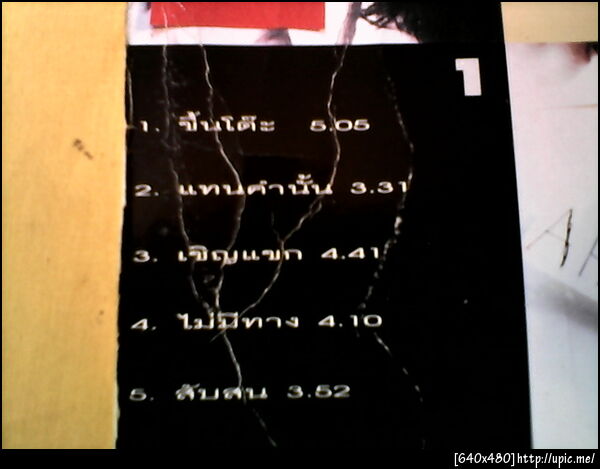 1
1. ขึ้นโต๊ะ 5.05
2. แทนคำนั้น 3.31
3. เชิญแขก 4.41
4. ไม่มีทาง 4.10
5. สับสน 3.52
[640x480]http://upic.me/